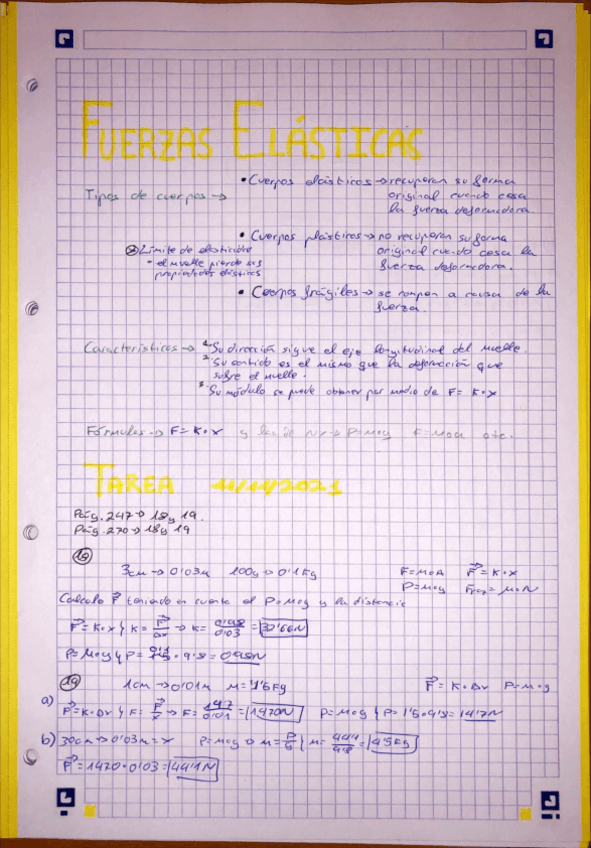 FUERZAS ELÁSTICAS
Tipos de cuerpos →
• Cuerpos elásticos → recuperan su forma
original cuando cesa
la fuerza deformadora.
• Cuerpos plásticos → no recuperan su forma
original cuando cesa la
fuerza deformadora.
Límite de elasticidad
- el muelle pierde sus
propiedades elásticas
• Cuerpos frágiles → se rompen a causa de la
fuerza.
Características →
Su dirección sigue el eje longitudinal del muelle.
Su sentido es el mismo que la deformación que
sufre el muelle.
Su módulo se puede obtener por medio de F = K·x
Fórmulas → F = K·x y las de → P=m·g F=m·a etc.
TAREA 11/11/2021
Pág. 247 → 18 y 19.
Pág. 270 → 18 y 19
18
3cm → 0'03m 100g → 0'1Kg F=m·A F = K·x
P=m·g
Calculo F teniendo en cuenta el P=m·g y la distancia
F = K·x } K = F/Δx → K = 0'98/0'03 = 32'66N
P=m·g } P = 0'1 · 9'8 = 0'98N
19
1cm → 0'01m m = 1'5Kg F = K·Δx P=m·g
a)
F = K·Δx } K = F/x → K = 14'7/0'01 = 1470N P=m·g } P = 1'5·9'8 = 14'7N
b) 30cm → 0'03m = x P=m·g → m = P/g } m = 44'1/9'8 = 4'5Kg
F = 1470·0'03 = 44'1N